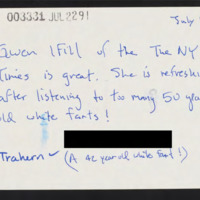 003331 JUL 22 91
July
Gwen Ifill of the The NY
Times is great. She is refreshi
after listening to too many 50 yea
old white farts!
Trahern ✓ (A 42 year old white fart!)